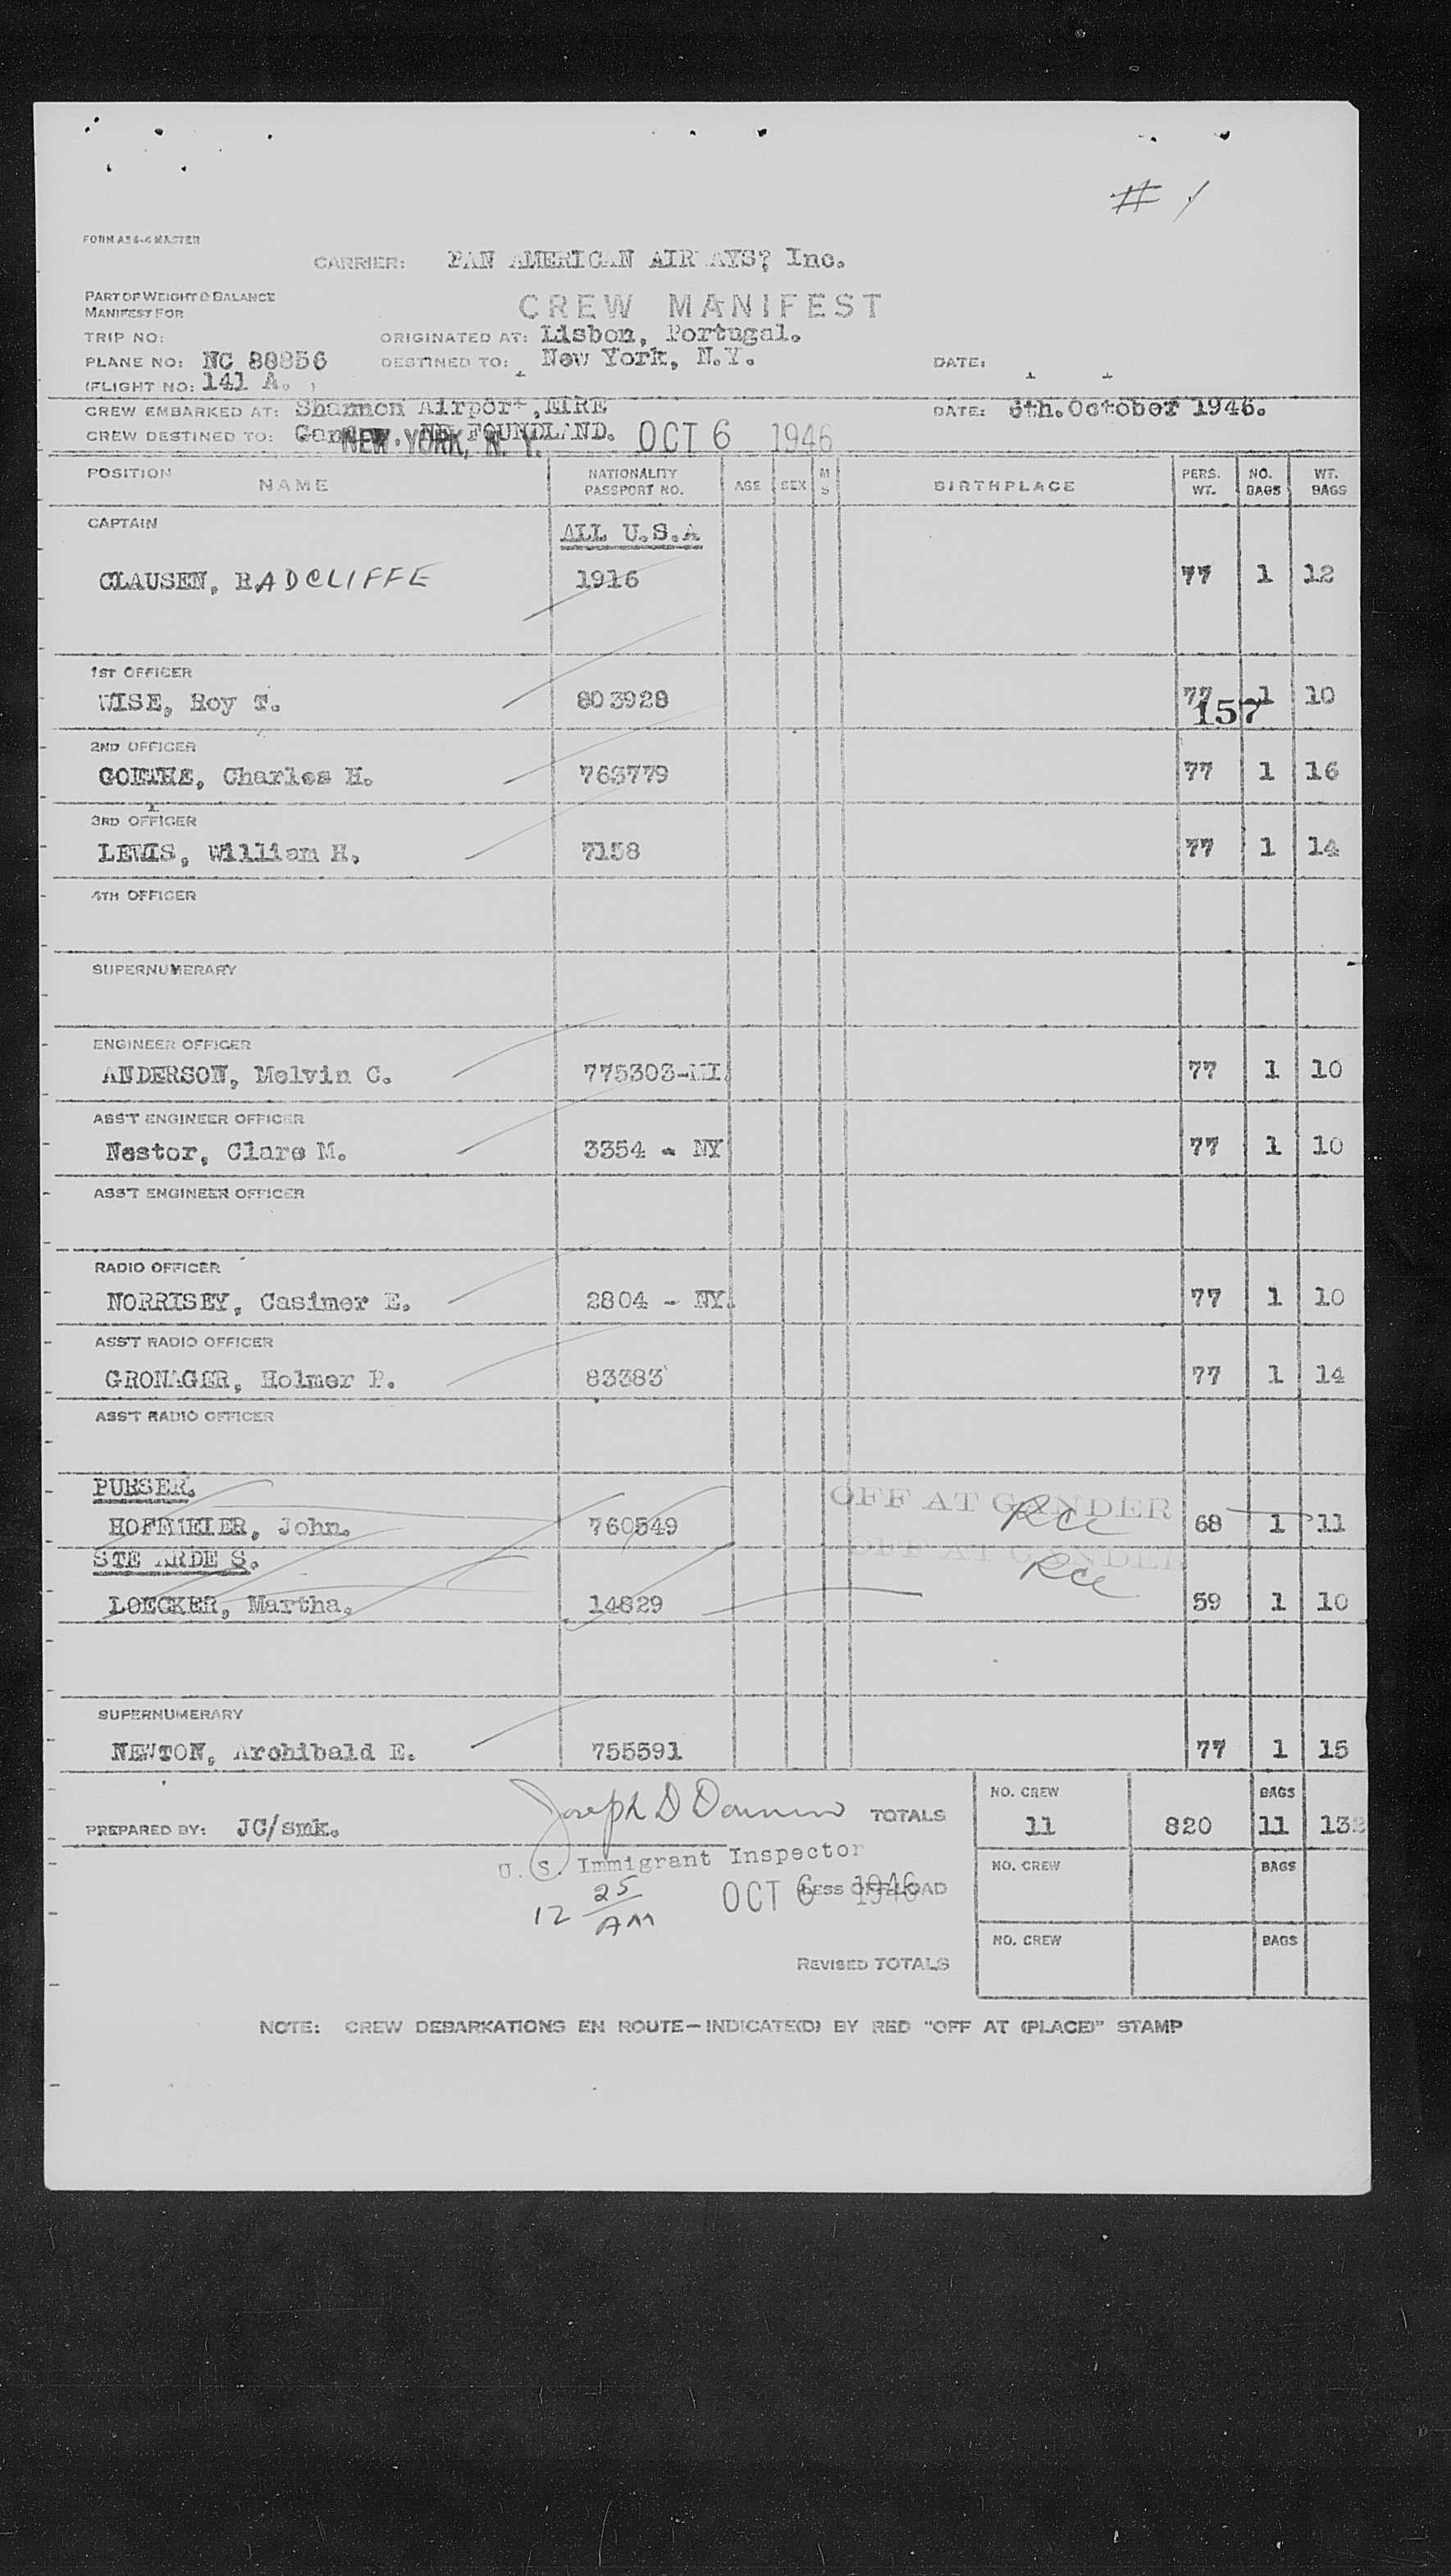 # 1
FORM A56-C MASTER
CARRIER: PAN AMERICAN AIR AYS? Inc.
PART OF WEIGHT & BALANCE
MANIFEST FOR
CREW MANIFEST
TRIP NO: ORIGINATED AT: Lisbon, Portugal.
PLANE NO: NC 88856 DESTINED TO: New York, N.Y. DATE:
(FLIGHT NO: 141 A. )
CREW EMBARKED AT: Shannon Airport, EIRE DATE: 6th. October 1946.
CREW DESTINED TO: FOUNDLAND. NEW YORK, N. Y. OCT 6 1946
POSITION NAME NATIONALITY PASSPORT NO. AGE SEX M S BIRTHPLACE PERS. WT. NO. BAGS WT. BAGS
CAPTAIN ALL U.S.A
CLAUSEN, RADCLIFFE 1916 77 1 12
1ST OFFICER
WISE, Roy T. 803928 77 1 10
157
2ND OFFICER
GOETHE, Charles H. 763779 77 1 16
3RD OFFICER
LEWIS, William H. 7158 77 1 14
4TH OFFICER
SUPERNUMERARY
ENGINEER OFFICER
ANDERSON, Melvin C. 775303-MI. 77 1 10
ASS'T ENGINEER OFFICER
Nestor, Clare M. 3354 - NY 77 1 10
ASS'T ENGINEER OFFICER
RADIO OFFICER
NORRISEY, Casimer E. 2804 - NY. 77 1 10
ASS'T RADIO OFFICER
GRONAGER, Holmer P. 83383 77 1 14
ASS'T RADIO OFFICER
PURSER.
HOFFMEIER, John. 760549 OFF AT GANDER RCC 68 1 11
STE ARDE S. OFF AT GANDER
LOECKER, Martha. 14829 RCC 59 1 10
SUPERNUMERARY
NEWTON, Archibald E. 755591 77 1 15
PREPARED BY: JC/smk. Joseph D TOTALS NO. CREW 11 820 BAGS 11 132
U. S. Immigrant Inspector NO. CREW BAGS
12 25 AM OCT 6 1946 LESS OFFLOAD
REVISED TOTALS NO. CREW BAGS
NOTE: CREW DEBARKATIONS EN ROUTE—INDICATE(D) BY RED "OFF AT (PLACE)" STAMP